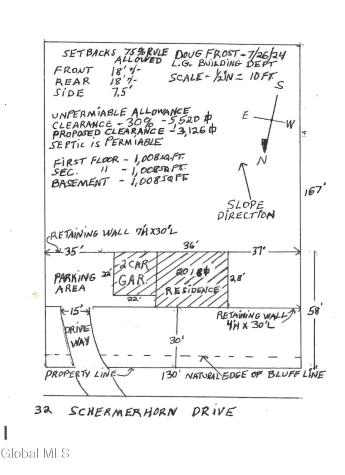 SETBACKS 75% RULE ALLOWED
FRONT 18' +/-
REAR 18' +/-
SIDE 7.5'
DOUG FROST - 7/26/24
L.G. BUILDING DEPT
SCALE - 1/2 IN = 10 FT.
S
E
W
N
UNPERMIABLE ALLOWANCE
CLEARANCE - 30% - 5,520 ⌀
PROPOSED CLEARANCE - 3,126 ⌀
SEPTIC IS PERMIABLE
FIRST FLOOR - 1,008 SQ.FT.
SEC. " - 1,008 SQ.FT.
BASEMENT - 1,008 SQ FT
SLOPE
DIRECTION
167'
RETAINING WALL 7'H X 30'L
35'
36'
37'
PARKING
AREA
2 CAR
GAR.
22'
22'
RESIDENCE
28'
RETAINING WALL
4'H X 30'L
58'
15'
DRIVE
WAY
30'
PROPERTY LINE
130'
NATURAL EDGE OF BLUFF LINE
32 SCHERMERHORN DRIVE
Global MLS